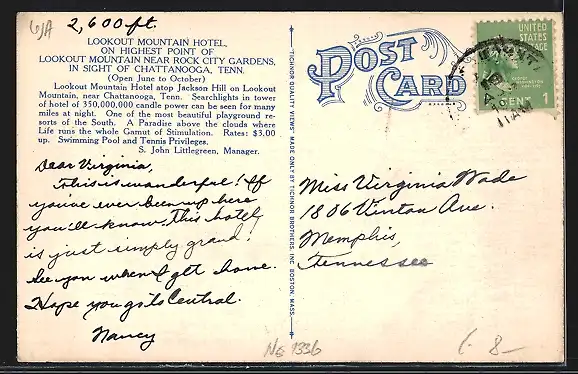 6/A
2,600 ft.
LOOKOUT MOUNTAIN HOTEL,
ON HIGHEST POINT OF
LOOKOUT MOUNTAIN NEAR ROCK CITY GARDENS,
IN SIGHT OF CHATTANOOGA, TENN.
(Open June to October)
Lookout Mountain Hotel atop Jackson Hill on Lookout
Mountain, near Chattanooga, Tenn. Searchlights in tower
of hotel of 350,000,000 candle power can be seen for many
miles at night. One of the most beautiful playground re-
sorts of the South. A Paradise above the clouds where
Life runs the whole Gamut of Stimulation. Rates: $3.00
up. Swimming Pool and Tennis Privileges.
S. John Littlegreen, Manager.
Dear Virginia,
This is wonderful! If
you've ever been up here
you'll know. This hotel
is just simply grand!
See you when I get home.
Hope you go to Central.
Nancy
TICHNOR QUALITY VIEWS MADE ONLY BY TICHNOR BROTHERS, INC. BOSTON, MASS.
POST
CARD
UNITED
STATES
POSTAGE
CENT 1
11 AM
Miss Virginia Wade
1806 Vinton Ave.
Memphis,
Tennessee
NG 1336